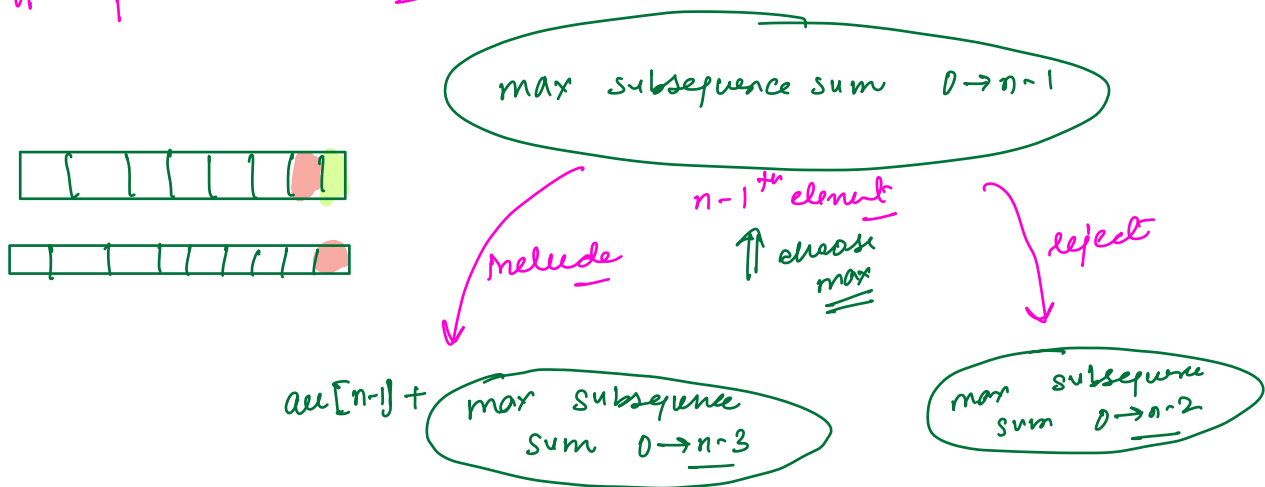 max subsequence sum 0→n-1
n-1th element
include
choose
max
reject
arr[n-1] + max subsequence
sum 0→n-3
max subsequence
sum 0→n-2